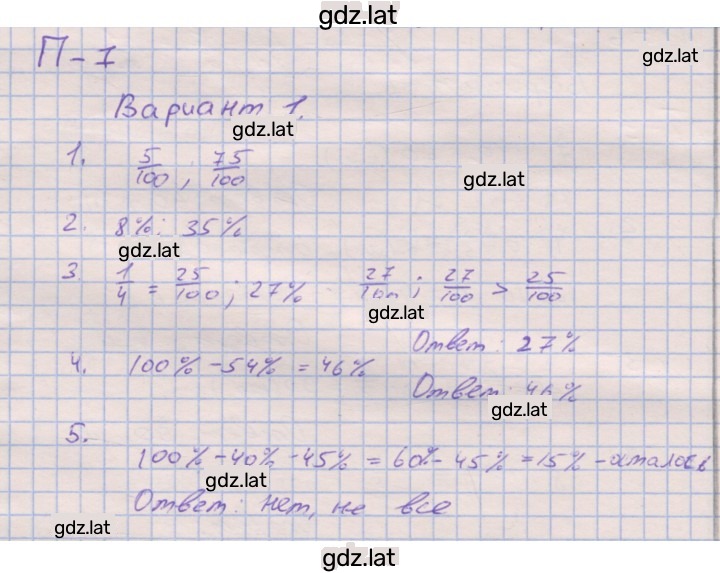 gdz.lat
П-I
gdz.lat
Вариант 1.
gdz.lat
1. 5/100, 75/100
gdz.lat
2. 8%; 35%
gdz.lat
3. 1/4 = 25/100; 27% 27/100; 27/100 > 25/100
gdz.lat
Ответ: 27%
4. 100% - 54% = 46%
Ответ: 46%
gdz.lat
5.
100% - 40% - 45% = 60% - 45% = 15% - осталось
gdz.lat
Ответ: нет, не все
gdz.lat
gdz.lat